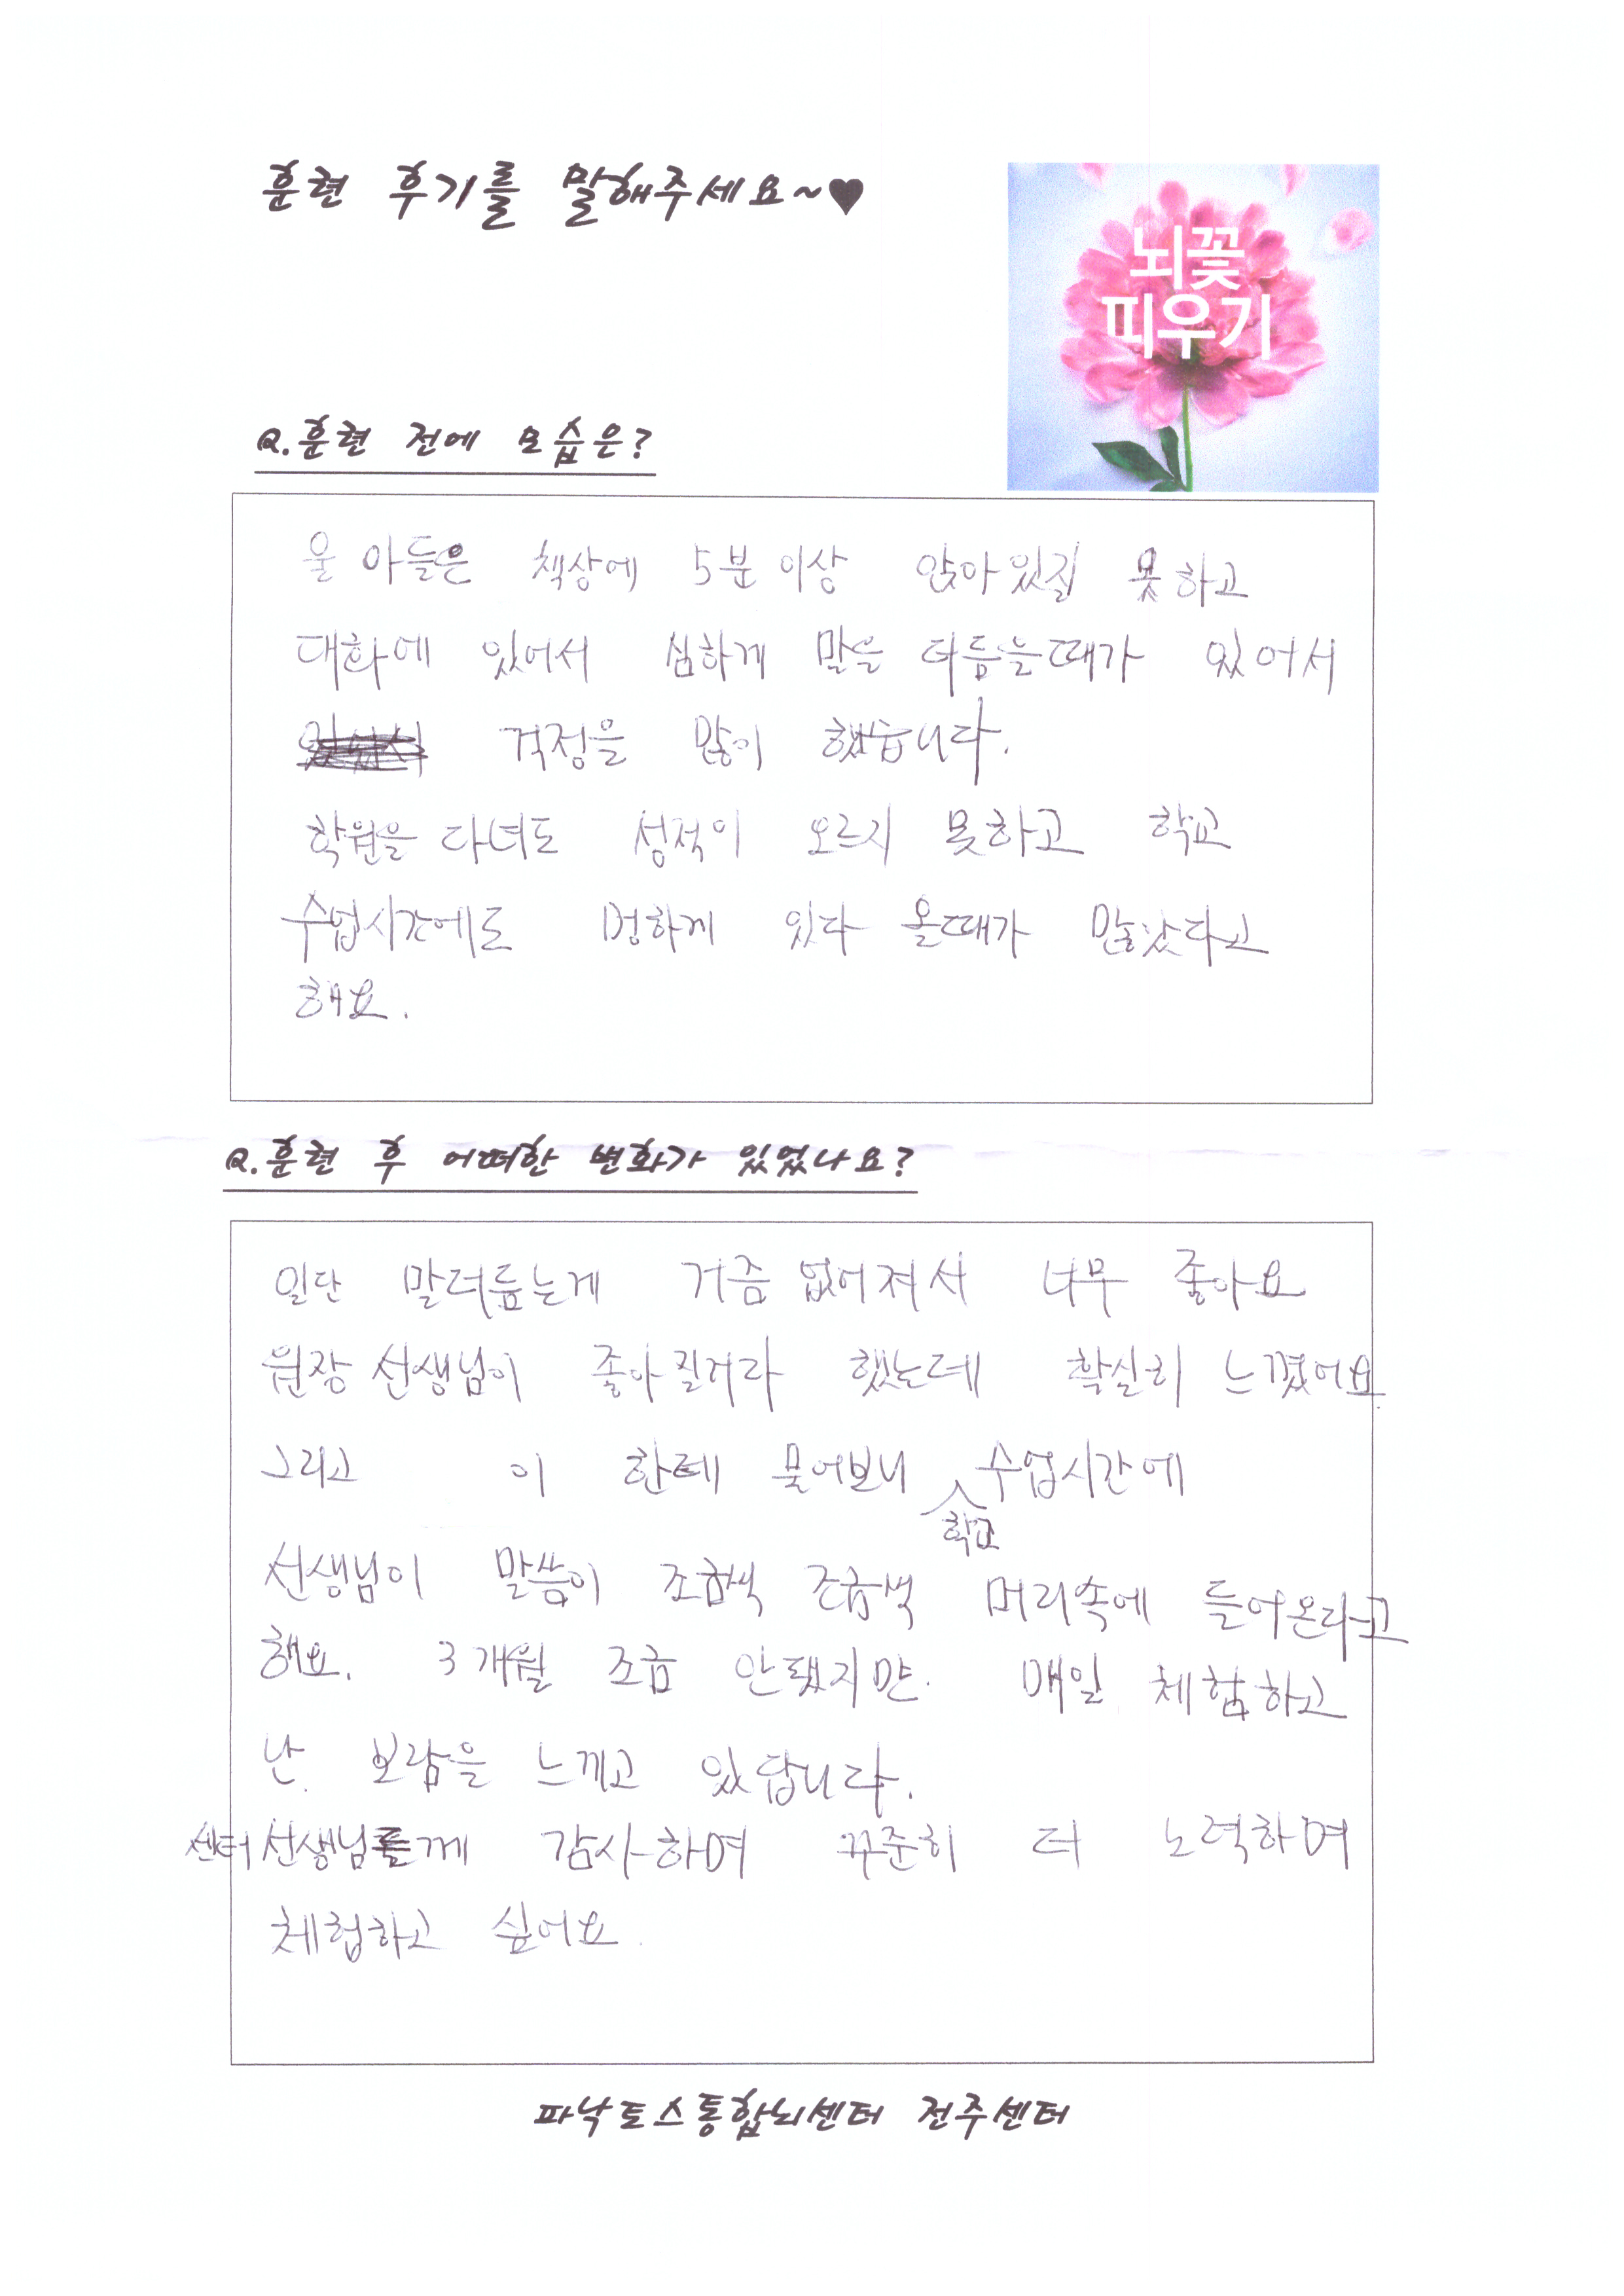 훈련 후기를 말해주세요~♥
뇌꽃
피우기
Q.훈련 전에 모습은?
울 아들은 책상에 5분 이상 앉아있질 못하고
대화에 있어서 심하게 말을 더듬을때가 있어서
걱정을 많이 했습니다.
학원을 다녀도 성적이 오르지 못하고 학교
수업시간에도 멍하게 있다 올때가 많았다고
해요.
Q.훈련 후 어떠한 변화가 있었나요?
일단 말더듬는게 거즘 없어져서 너무 좋아요
원장 선생님이 좋아질거라 했는데 확실히 느꼈어요.
그리고 이 한테 물어보니 학교 수업시간에
선생님이 말씀이 조금씩 조금씩 머리속에 들어온다고
해요. 3개월 조금 안됐지만. 매일 체험하고
난. 보람을 느끼고 있답니다.
센터 선생님들께 감사하며 꾸준히 더 노력하며
체험하고 싶어요.
파낙토스통합뇌센터 전주센터